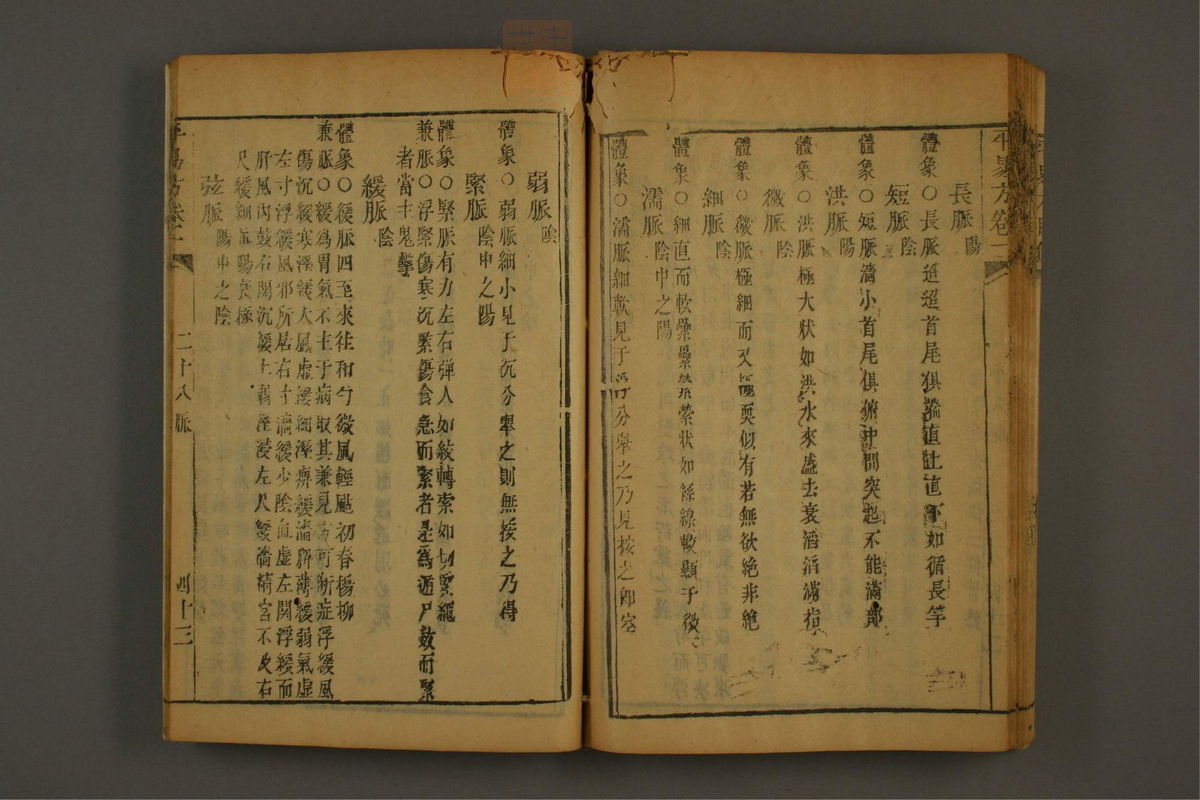 長脈陽
體象○長脈迢迢首尾俱端直上直下如循長竿
短脈陰
體象○短脈濇小首尾俱俯中間突起不能滿部
洪脈陽
體象○洪脈極大狀如洪水來盛去衰滔滔滿指
微脈陰
體象○微脈極細而又耎似有若無欲絕非絕
細脈陰
體象○細直而軟纍纍縈縈狀如絲線較顯于微
濡脈陰中之陽
體象○濡脈細軟見于浮分舉之乃見按之卽空
弱脈陰
體象○弱脈細小見于沉分舉之則無按之乃得
緊脈陰中之陽
體象○緊脈有力左右彈人如絞轉索如切緊繩
兼脈○浮緊傷寒沉緊傷食急而緊者是爲遁尸數而緊
者當主鬼擊
緩脈陰
體象○緩脈四至來往和勻微風輕颭初春楊柳
兼脈○緩爲胃氣不主于病取其兼見方可斷症浮緩風
傷沉緩寒溼緩大風虛緩細溼痹緩濇脾薄緩弱氣虛
左寸浮緩風邪所居右寸濇緩少陰血虛左關浮緩而
肝風內鼓右關沉緩土弱溼侵左尺緩濇精宮不及右
尺緩細眞陽衰極
弦脈陽中之陰
方卷二
二十八脈
四十三